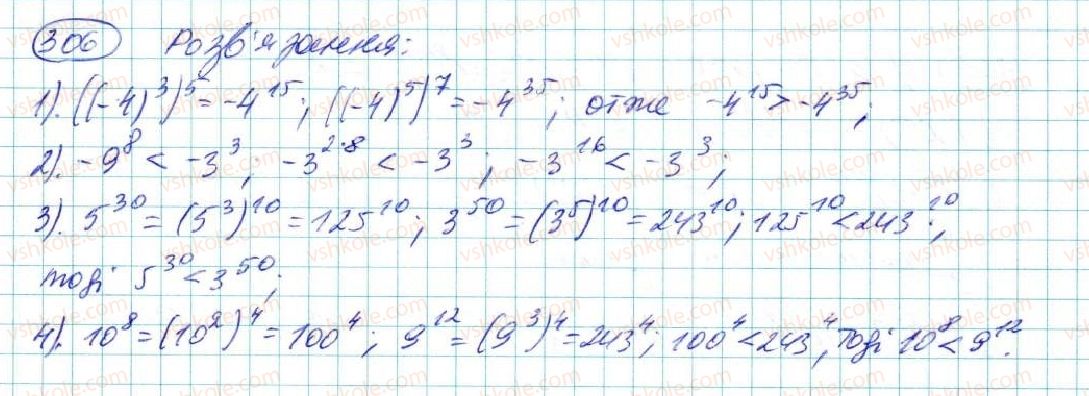 306 Розв'язання:
1). ((-4)³)⁵ = -4¹⁵; ((-4)⁵)⁷ = -4³⁵; отже -4¹⁵ > -4³⁵;
2). -9⁸ < -3³; -3²·⁸ < -3³; -3¹⁶ < -3³;
3). 5³⁰ = (5³)¹⁰ = 125¹⁰; 3⁵⁰ = (3⁵)¹⁰ = 243¹⁰; 125¹⁰ < 243¹⁰;
тоді 5³⁰ < 3⁵⁰;
4). 10⁸ = (10²)⁴ = 100⁴; 9¹² = (9³)⁴ = 243⁴; 100⁴ < 243⁴, тоді 10⁸ < 9¹².